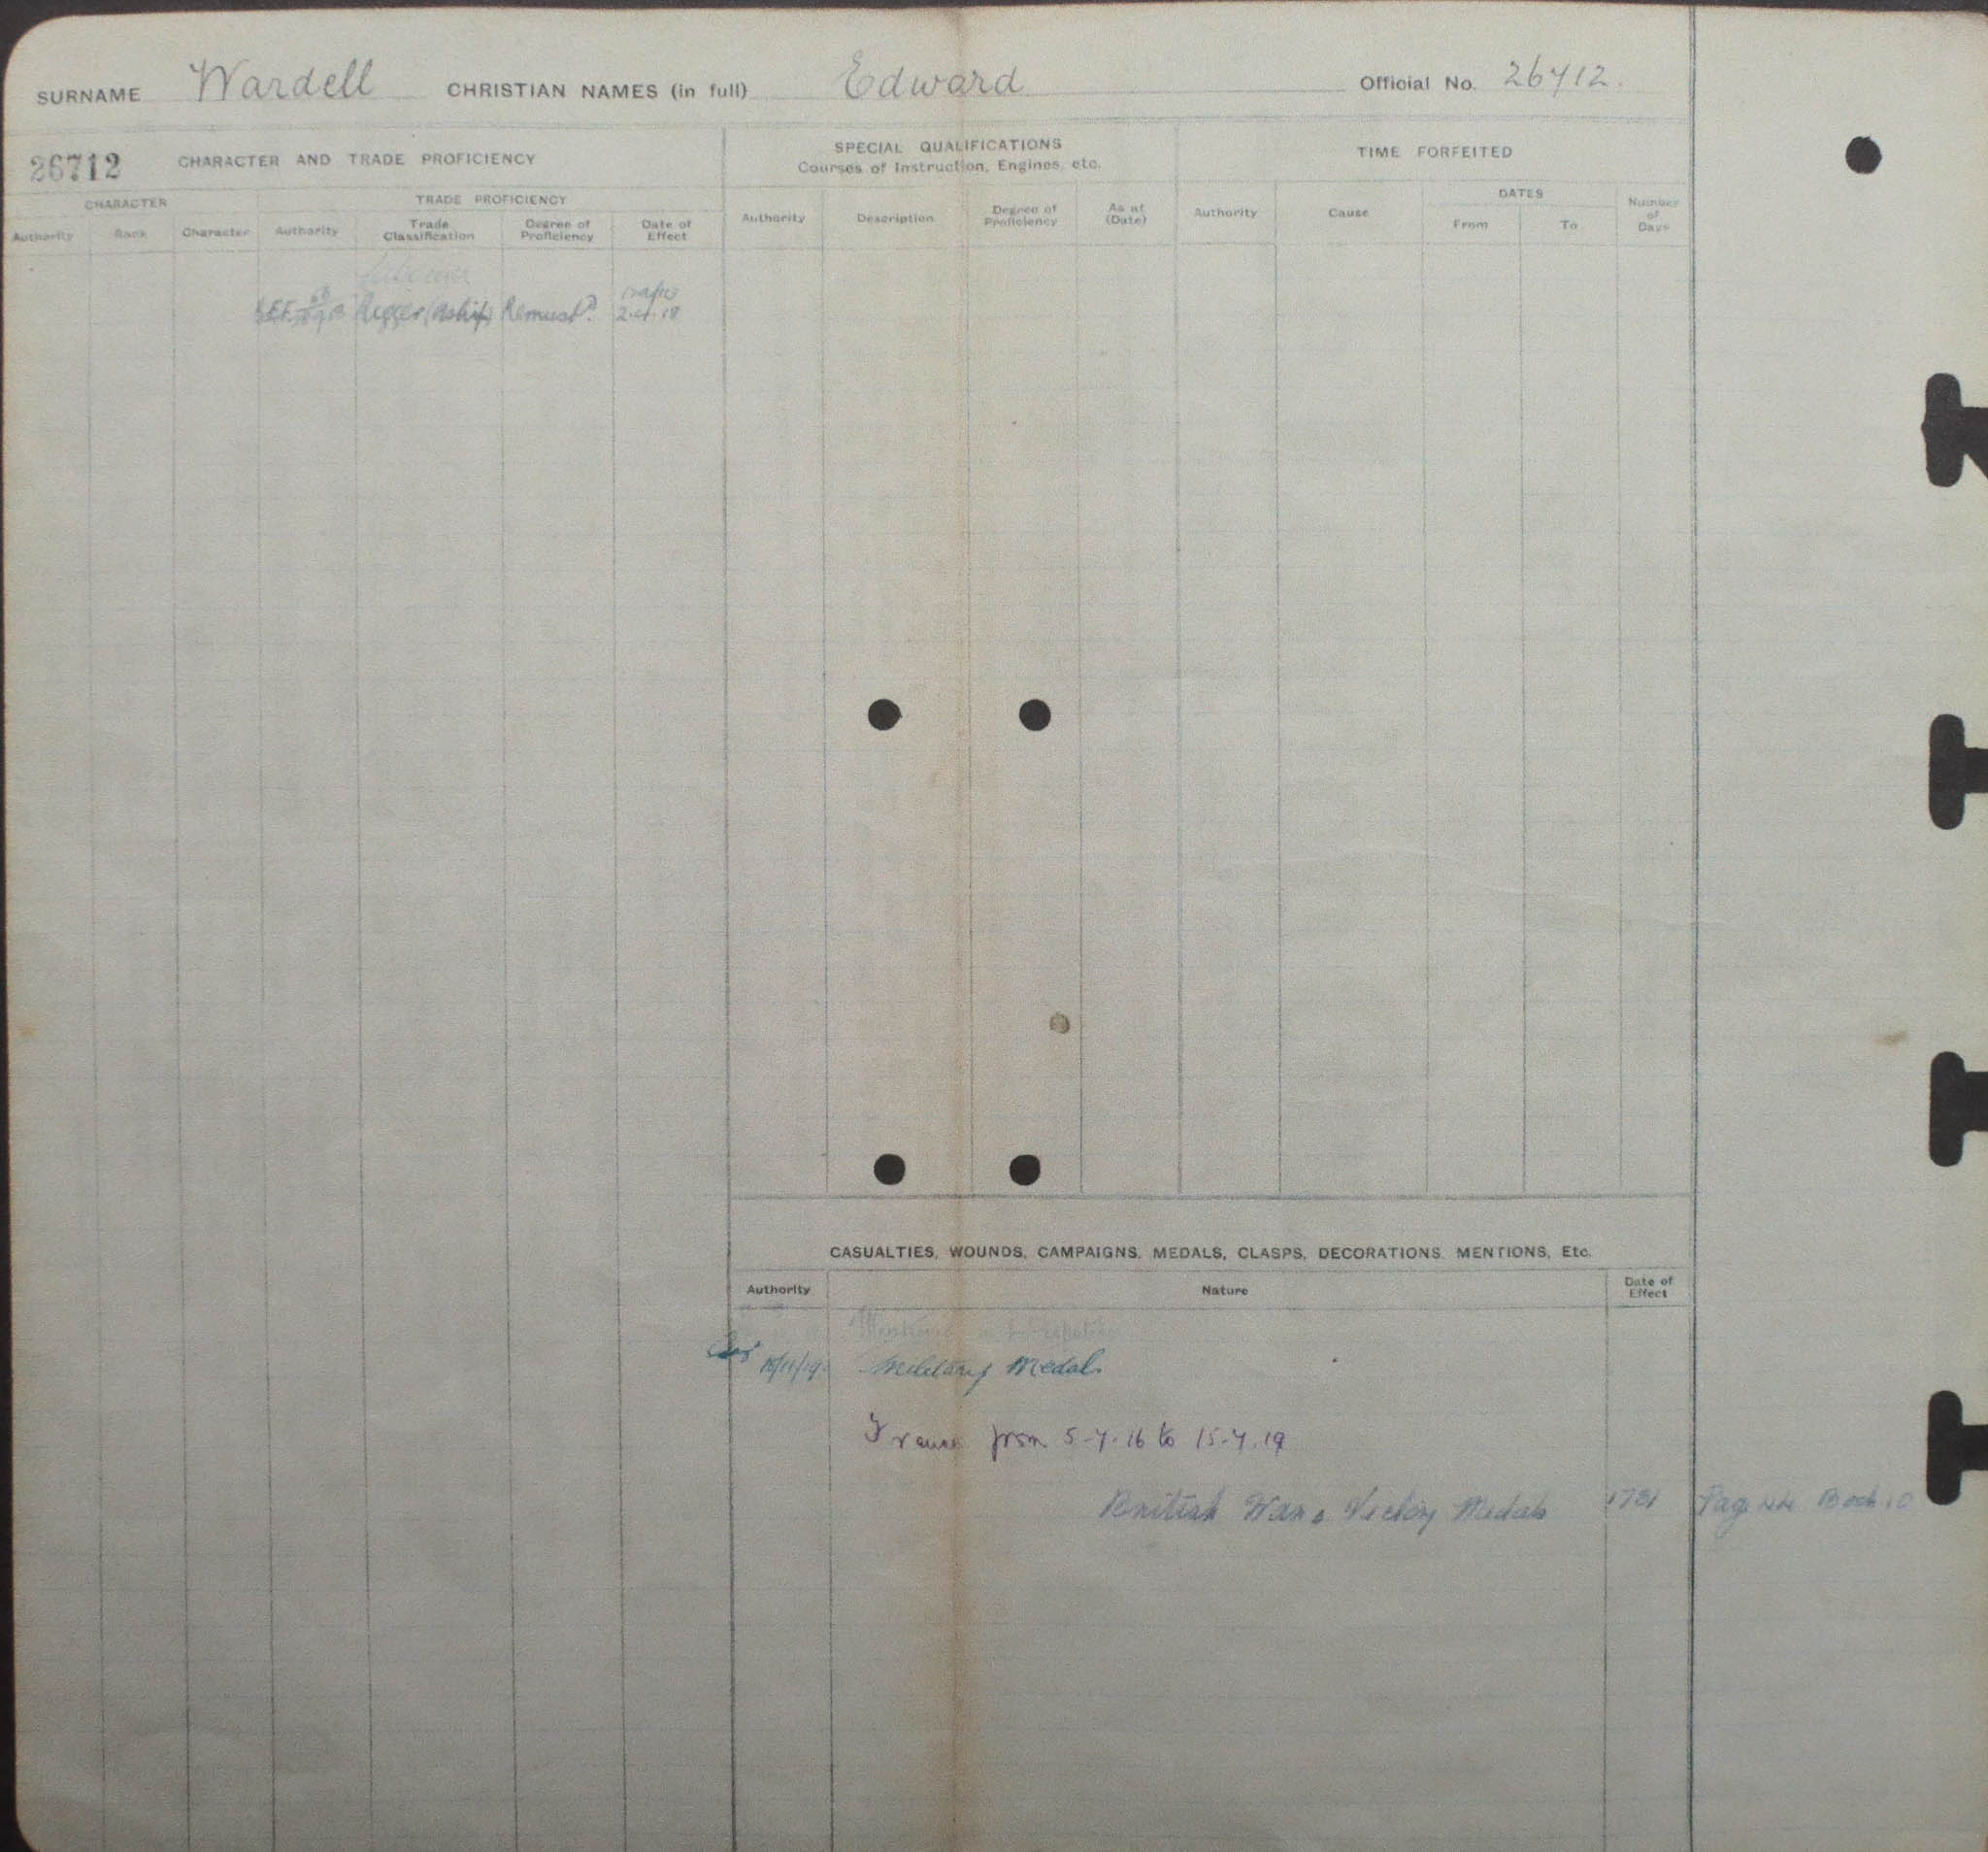 SURNAME Wardell CHRISTIAN NAMES (in full) Edward Official No. 26712.
26712 CHARACTER AND TRADE PROFICIENCY
SPECIAL QUALIFICATIONS
Courses of Instruction, Engines, etc.
TIME FORFEITED
CHARACTER
TRADE PROFICIENCY
DATES
Authority Rank Character Authority Trade Classification Degree of Proficiency Date of Effect
Authority Description Degree of Proficiency As at (Date)
Authority Cause From To Number of Days
Rigger (Aship) Remust? 2.4.18
CASUALTIES, WOUNDS, CAMPAIGNS, MEDALS, CLASPS, DECORATIONS, MENTIONS, Etc.
Authority Nature Date of Effect
Military Medal
France from 5-7-16 to 15-7.19
British War & Victory Medals 1731 Page Book 10